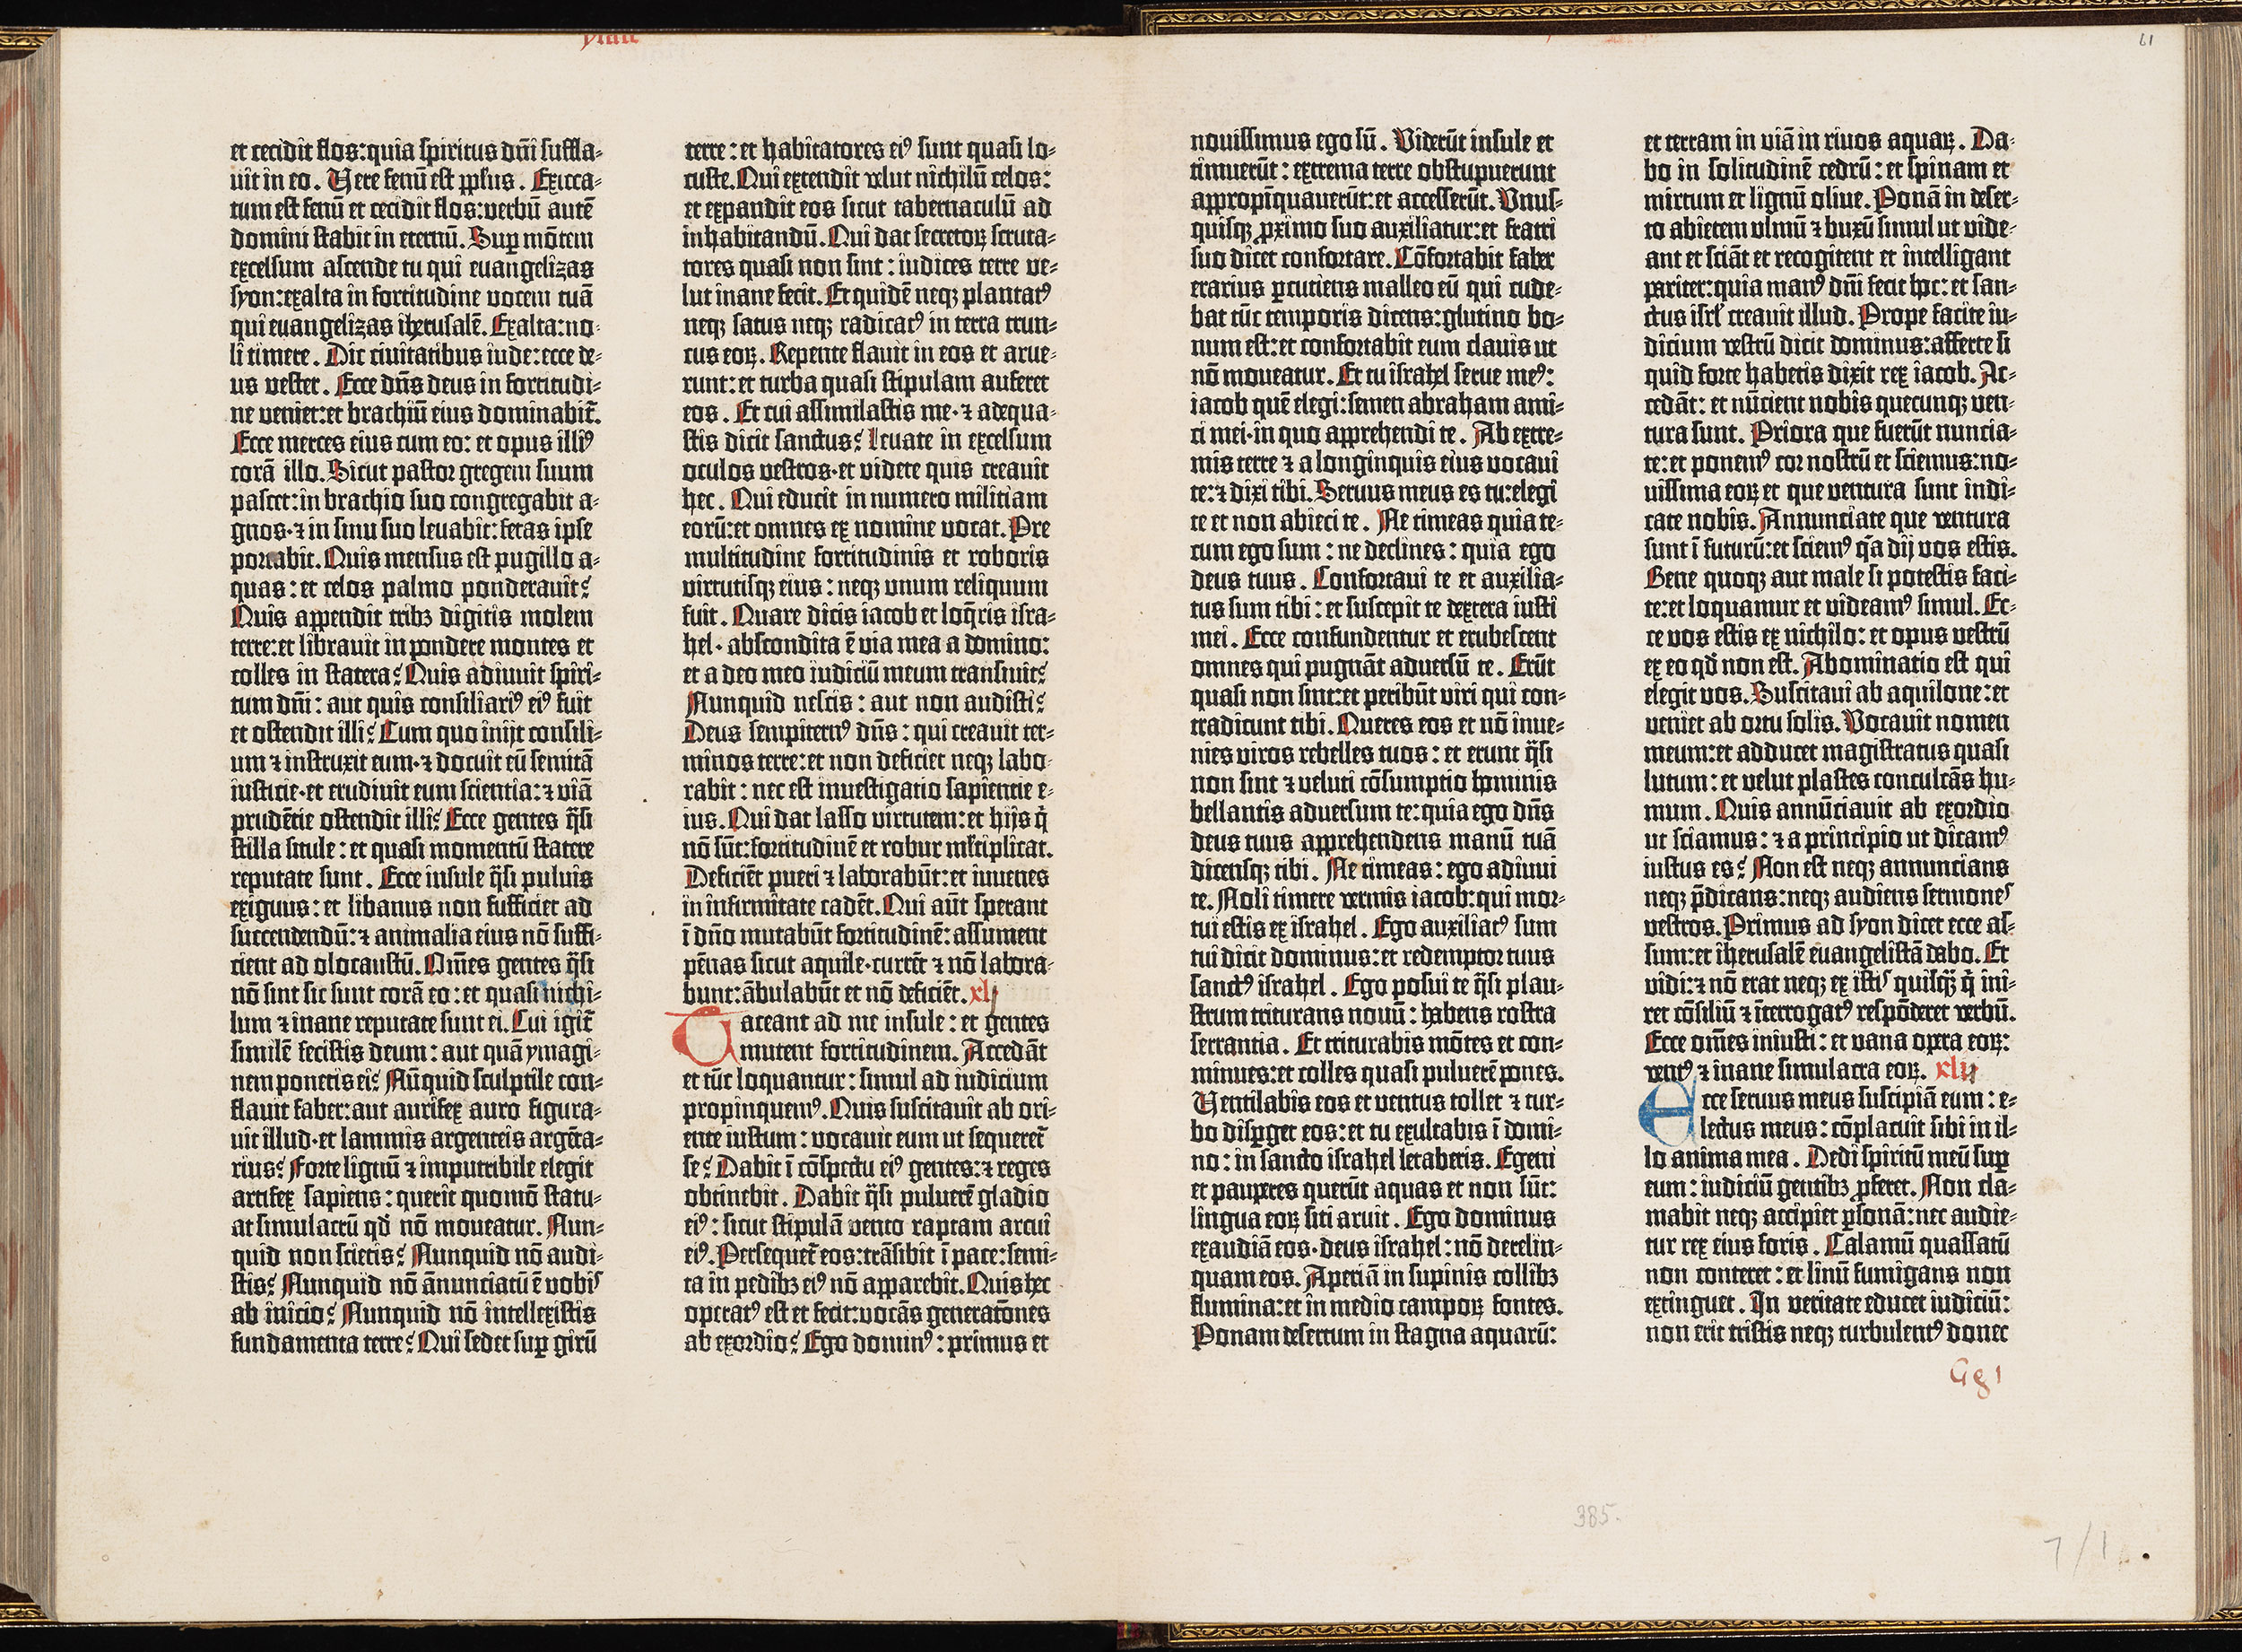 ysaie
61
et cecidit flos:quia spiritus dñi suffla⸗
uit in eo. Uere fenũ est ppl̃us. Exicca⸗
tum est fenũ et cecidit flos:verbũ autē
domini stabit in eternũ. Suꝑ mōtem
excelsum ascende tu qui euangelizas
syon:exalta in fortitudine vocem tuã
qui euangelizas iherusalē. Exalta:no⸗
li timere. Dic ciuitatibus iude:ecce de⸗
us vester. Ecce dñs deus in fortitudi⸗
ne veniet:et brachiũ eius dominabit̃.
Ecce merces eius cum eo: et opus illiꝰ
corã illo. Sicut pastor gregem suum
pascet:in brachio suo congregabit a⸗
gnos·⁊ in sinu suo leuabit:fetas ipse
portabit. Quis mensus est pugillo a⸗
quas: et celos palmo ponderauit?
Quis appendit tribꝫ digitis molem
terre:et librauit in pondere montes et
colles in statera? Quis adiuuit spiri⸗
tum dñi: aut quis consiliariꝰ eiꝰ fuit
et ostendit illi? Cum quo inijt consili⸗
um ⁊ instruxit eum·⁊ docuit eũ semitã
iusticie·et erudiuit eum scientia:⁊ viã
prudētie ostendit illi? Ecce gentes q̃si
stilla situle: et quasi momentũ statere
reputate sunt. Ecce insule q̃si puluis
exiguus: et libanus non sufficiet ad
succendendũ:⁊ animalia eius nō suffi⸗
cient ad olocaustũ. Om̃es gentes q̃si
nō sint sic sunt corã eo: et quasi nichi⸗
lum ⁊ inane reputate sunt ei. Cui igit̃
similē fecistis deum: aut quã ymagi⸗
nem ponetis ei? Nũquid sculptile con⸗
flauit faber:aut aurifex auro figura⸗
uit illud·et lammis argenteis argēta⸗
rius? Forte lignũ ⁊ imputribile elegit
artifex sapiens: querit quomō statu⸗
at simulacrũ qđ nō moueatur. Nun⸗
quid non scietis? Nunquid nō audi⸗
stis? Nunquid nō ãnunciatũ ē vobis
ab inicio? Nunquid nō intellexistis
fundamenta terre? Qui sedet suꝑ girũ
terre: et habitatores eiꝰ sunt quasi lo⸗
custe. Qui extendit velut nichilũ celos:
et expandit eos sicut tabernaculũ ad
inhabitandũ. Qui dat secretoꝝ scruta⸗
tores quasi non sint: iudices terre ve⸗
lut inane fecit. Et quidē neqꝫ plantatꝰ
neqꝫ satus neqꝫ radicatꝰ in terra trun⸗
cus eoꝝ. Repente flauit in eos et arue⸗
runt:et turbo quasi stipulam auferet
eos. Et cui assimilastis me·⁊ adequa⸗
stis dicit sanctus? Leuate in excelsum
oculos vestros·et videte quis creauit
hec. Qui educit in numero militiam
eorũ:et omnes ex nomine vocat. Pre
multitudine fortitudinis et roboris
virtutisqꝫ eius: neqꝫ unum reliquum
fuit. Quare dicis iacob et loq̃ris isra⸗
hel· abscondita ē via mea a domino:
et a deo meo iudiciũ meum transiuit?
Nunquid nescis: aut non audisti?
Deus sempiternꝰ dñs: qui creauit ter⸗
minos terre:et non deficiet neqꝫ labo⸗
rabit: nec est inuestigatio sapientie e⸗
ius. Qui dat lasso virtutem:et hijs q̃
nō sũt:fortitudinē et robur ml̃tiplicat.
Deficiēt pueri ⁊ laborabũt:et iuuenes
in infirmitate cadēt. Qui aũt sperant
ī dño mutabũt fortitudinē: assument
pēnas sicut aquile·currēt ⁊ nō labora⸗
bunt:ãbulabũt et nō deficiēt. xlj
Taceant ad me insule: et gentes
mutent fortitudinem. Accedãt
et tũc loquantur: simul ad iudicium
propinquemꝰ. Quis suscitauit ab ori⸗
ente iustum: vocauit eum ut sequeret̃
se? Dabit ī cōspectu eiꝰ gentes:⁊ reges
obtinebit. Dabit q̃si puluerē gladio
eiꝰ: sicut stipulã vento raptam arcui
eiꝰ. Persequet̃ eos:trãsibit ī pace:semi⸗
ta in pedibꝫ eiꝰ nō apparebit. Quis hec
operatꝰ est et fecit:vocãs generatōnes
ab exordio? Ego dominꝰ: primus et
nouissimus ego sũ. Viderũt insule et
timuerũt: extrema terre obstupuerunt
appropīquauerũt:et accesserũt. Vnus⸗
quisqꝫ ꝓximo suo auxiliatur:et fratri
suo dicet confortare. Cōfortabit faber
erarius ꝑcutiens malleo eũ qui cude⸗
bat tũc temporis dicens:glutino bo⸗
num est:et confortabit eum clauis ut
nō moueatur. Et tu israhel serue meꝰ:
iacob quē elegi:semen abraham ami⸗
ci mei·in quo apprehendi te. Ab extre⸗
mis terre ⁊ a longinquis eius vocaui
te:⁊ dixi tibi. Seruus meus es tu:elegi
te et non abieci te. Ne timeas quia te⸗
cum ego sum: ne declines: quia ego
deus tuus. Confortaui te et auxilia⸗
tus sum tibi: et suscepit te dextera iusti
mei. Ecce confundentur et erubescent
omnes qui pugnãt aduersũ te. Erũt
quasi non sint:et peribũt viri qui con⸗
tradicunt tibi. Queres eos et nō inue⸗
nies viros rebelles tuos: et erunt q̃si
non sint ⁊ veluti cōsumptio hominis
bellantis aduersum te:quia ego dñs
deus tuus apprehendens manũ tuã
dicensqꝫ tibi. Ne timeas: ego adiuui
te. Noli timere vermis iacob:qui mor⸗
tui estis ex israhel. Ego auxiliatꝰ sum
tui dicit dominus:et redemptor tuus
sanctꝰ israhel. Ego posui te q̃si plau⸗
strum triturans nouũ: habens rostra
serrantia. Et triturabis mōtes et con⸗
minues:et colles quasi puluerē pones.
Uentilabis eos et ventus tollet ⁊ tur⸗
bo disꝑget eos:et tu exultabis ī domi⸗
no: in sancto israhel letaberis. Egeni
et pauperes querũt aquas et non sũt:
lingua eoꝝ siti aruit. Ego dominus
exaudiã eos·deus israhel: nō derelin⸗
quam eos. Aperiã in supinis collibꝫ
flumina:et in medio campoꝝ fontes.
Ponam desertum in stagna aquarũ:
et terram in viã in riuos aquaꝝ. Da⸗
bo in solitudinē cedrũ: et spinam et
mirtum et lignũ oliue. Ponã in deser⸗
to abietem vlmũ ⁊ buxũ simul ut vide⸗
ant et sciãt et recogitent et intelligant
pariter:quia manꝰ dñi fecit hoc: et san⸗
ctus isrl̃ creauit illud. Prope facite iu⸗
dicium vestrũ dicit dominus:afferte si
quid forte habetis dixit rex iacob. Ac⸗
cedãt: et nũcient nobis quecunqꝫ ven⸗
tura sunt. Priora que fuerũt nuncia⸗
te:et ponemꝰ cor nostrũ et sciemus:no⸗
uissima eoꝝ et que ventura sunt indi⸗
cate nobis. Annunciate que ventura
sunt ī futurũ:et sciemꝰ q̃a dij vos estis.
Bene quoqꝫ aut male si potestis faci⸗
te:et loquamur et videamꝰ simul. Ec⸗
ce vos estis ex nichilo: et opus vestrũ
ex eo qđ non est. Abominatio est qui
elegit vos. Suscitaui ab aquilone:et
veniet ab ortu solis. Vocauit nomen
meum:et adducet magistratus quasi
lutum: et velut plastes conculcãs hu⸗
mum. Quis annũciauit ab exordio
ut sciamus: ⁊ a principio ut dicamꝰ
iustus es? Non est neqꝫ annuncians
neqꝫ p̃dicans:neqꝫ audiens sermones
vestros. Primus ad syon dicet ecce as⸗
sum:et iherusalē euangelistã dabo. Et
vidi:⁊ nō erat neqꝫ ex istis quisq̃ꝫ q̃ ini⸗
ret cōsiliũ ⁊ īterrogatꝰ respōderet verbũ.
Ecce om̃es iniusti: et vana opera eoꝝ:
ventꝰ ⁊ inane simulacra eoꝝ. xlij
Ecce seruus meus suscipiã eum: e⸗
lectus meus: cōplacuit sibi in il⸗
lo anima mea. Dedi spiritũ meũ suꝑ
eum: iudiciũ gentibꝫ ꝓferet. Non cla⸗
mabit neqꝫ accipiet ꝑsonã:nec audie⸗
tur vox eius foris. Calamũ quassatũ
non conteret: et linũ fumigans non
extinguet. In veritate educet iudiciũ:
non erit tristis neqꝫ turbulentꝰ donec
Gg1
385.
7/1